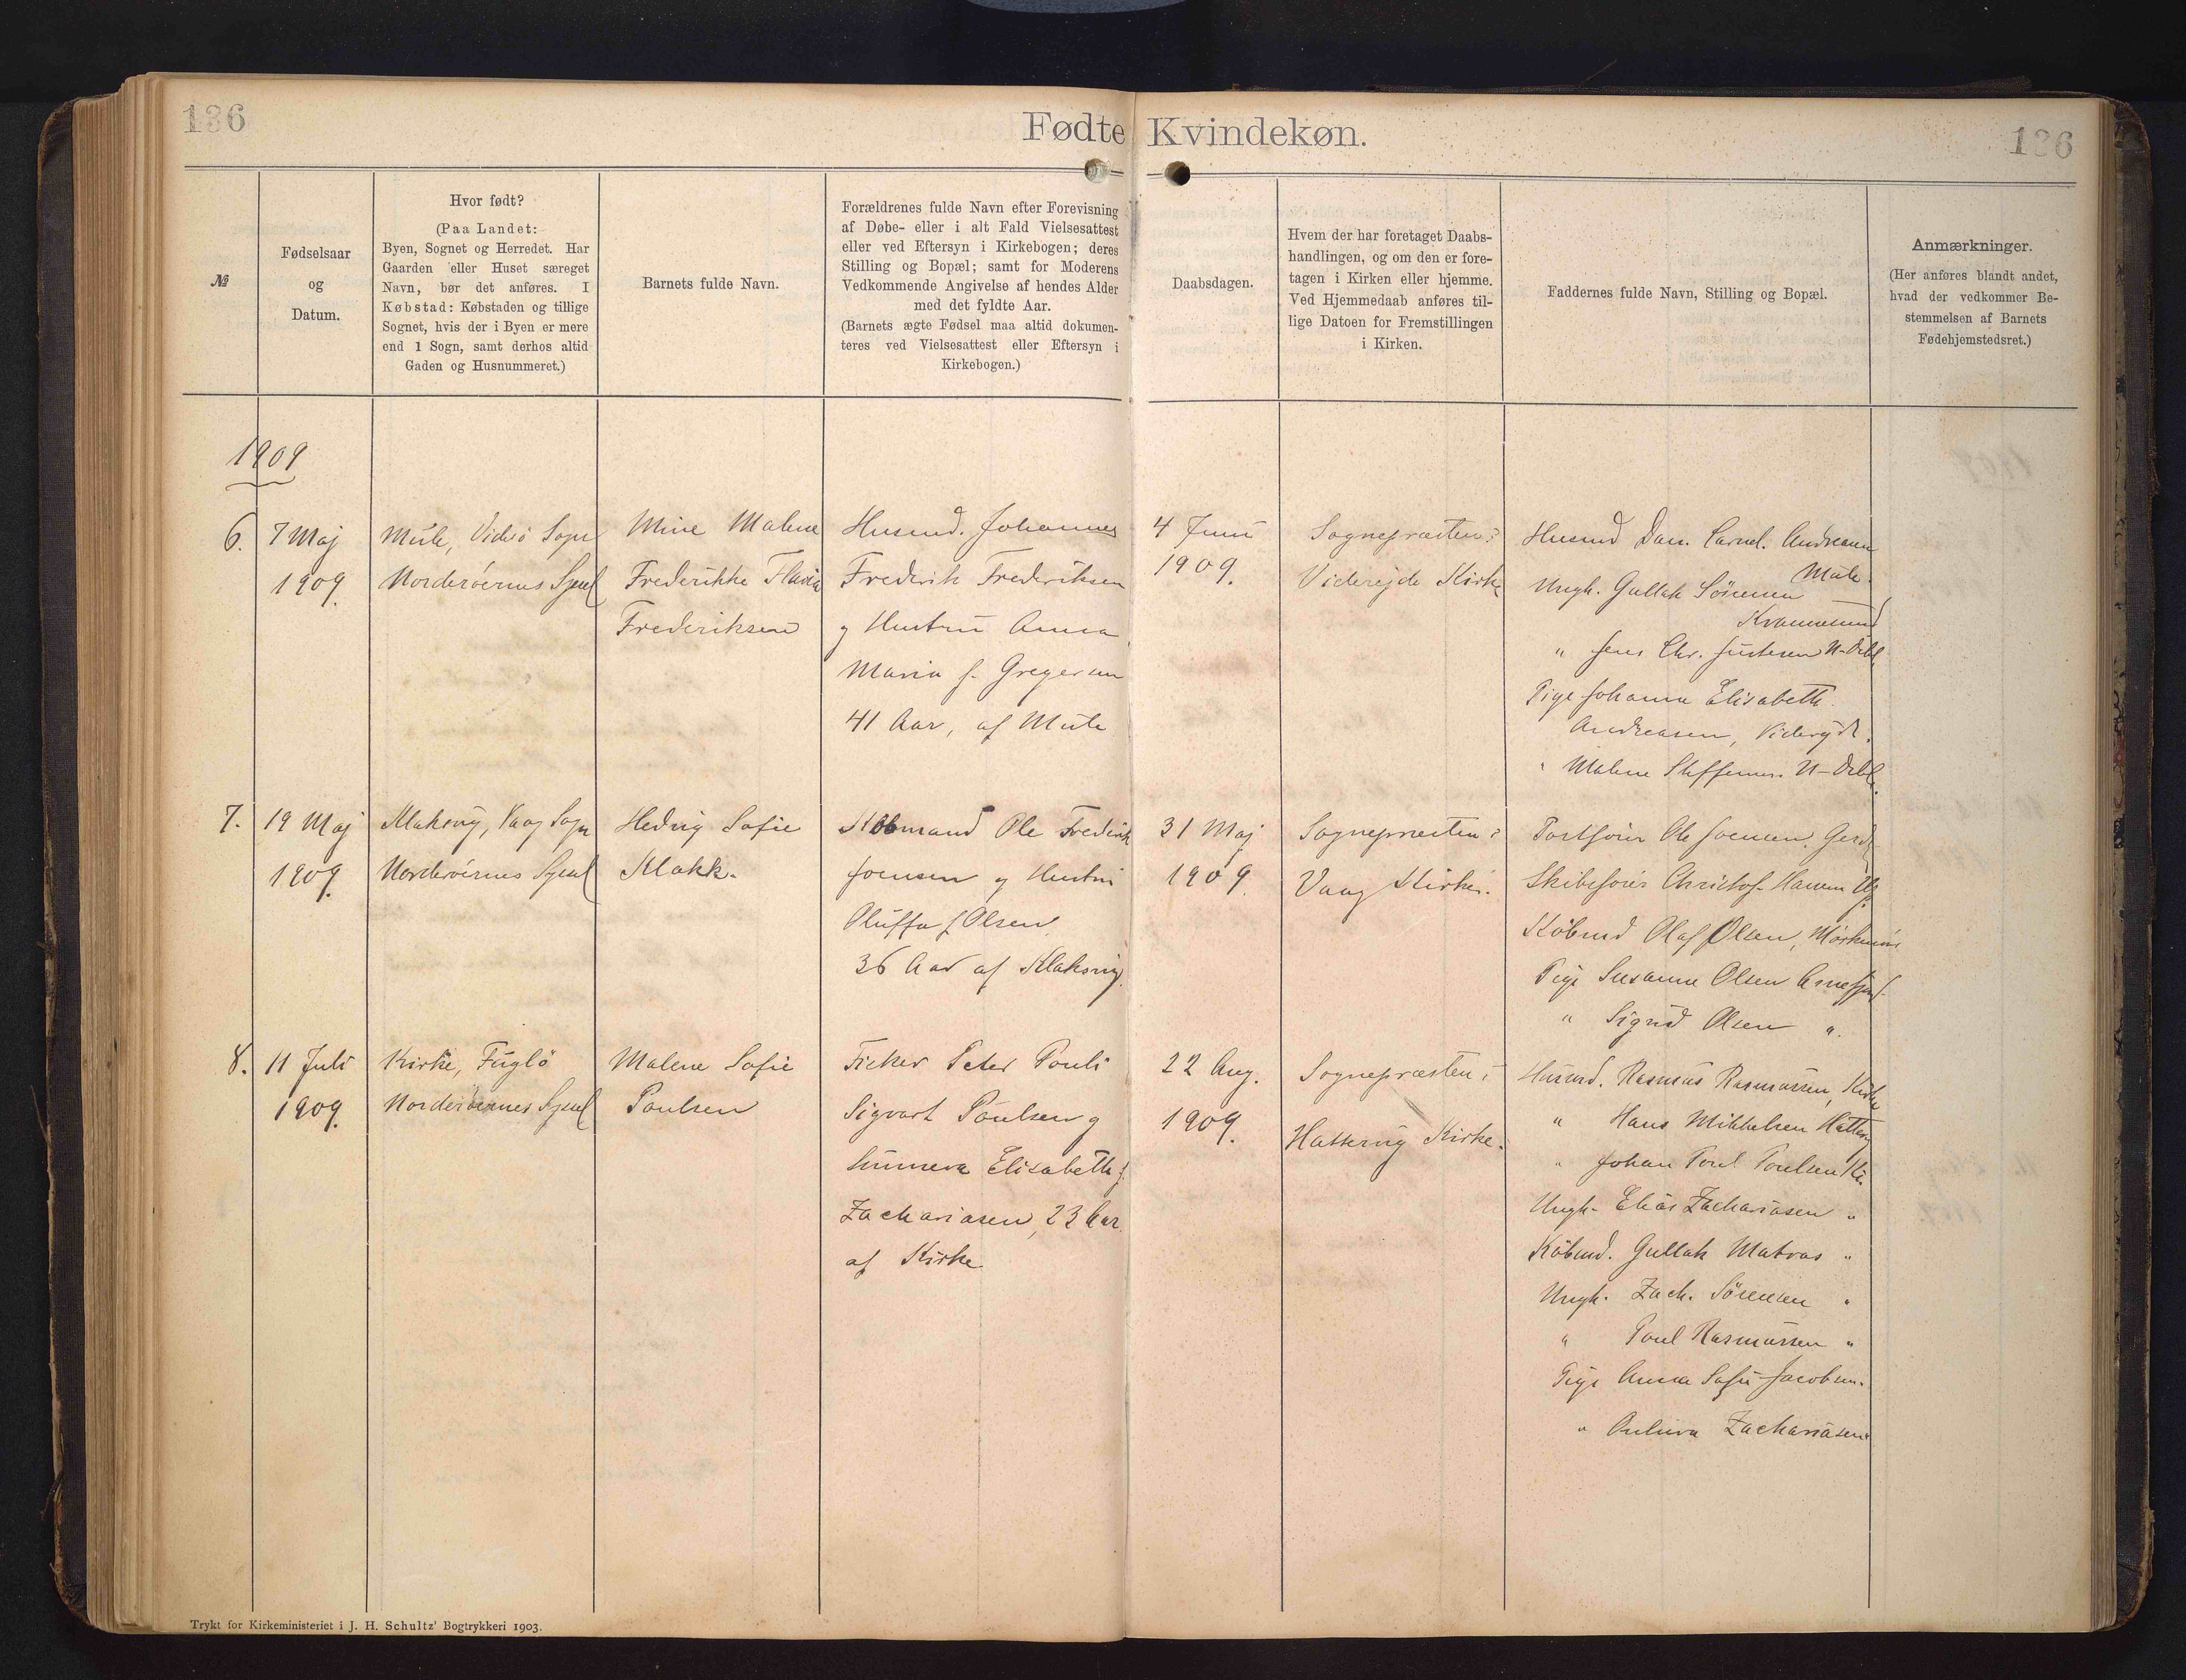 136
Fødte Kvindekøn.
136
№
Fødselsaar
og
Datum.
Hvor født?
(Paa Landet:
Byen, Sognet og Herredet. Har
Gaarden eller Huset særeget
Navn, bør det anføres. I
Købstad: Købstaden og tillige
Sognet, hvis der i Byen er mere
end 1 Sogn, samt derhos altid
Gaden og Husnummeret.)
Barnets fulde Navn.
Forældrenes fulde Navn efter Forevisning
af Døbe- eller i alt Fald Vielsesattest
eller ved Eftersyn i Kirkebogen; deres
Stilling og Bopæl; samt for Moderens
Vedkommende Angivelse af hendes Alder
med det fyldte Aar.
(Barnets ægte Fødsel maa altid dokumen-
teres ved Vielsesattest eller Eftersyn i
Kirkebogen.)
Daabsdagen.
Hvem der har foretaget Daabs-
handlingen, og om den er fore-
tagen i Kirken eller hjemme.
Ved Hjemmedaab anføres til-
lige Datoen for Fremstillingen
i Kirken.
Faddernes fulde Navn, Stilling og Bopæl.
Anmærkninger.
(Her anføres blandt andet,
hvad der vedkommer Be-
stemmelsen af Barnets
Fødehjemstedsret.)
1909
6.
7 Maj
1909.
Mule, Viderø Sogn
Norderøernes Syssel
Mine Malene
Frederikke Flavia
Frederiksen
Husmd. Johannes
Frederik Frederiksen
og Hustru Anna
Maria f. Gregersen
41 Aar, af Mule
4 Juni
1909.
Sognepræsten i
Viderejde Kirke
Husmd Dan. Carnel. Andreasen
Mule.
Ungk. Gullak Sørensen
" Jens Chr. Justesen N-Debl
Pige Johanna Elisabeth
Andreasen, Viderejde.
" Malene Steffensen N-Debl.
7.
19 Maj
1909.
Klaksvig, Vaag Sogn
Norderøernes Syssel
Hedvig Sofie
Klakk.
Købmand Ole Frederik
Joensen og Hustru
Oluffa f. Olsen
36 Aar af Klaksvig.
31 Maj
1909.
Sognepræsten i
Vaag Kirke.
Ole Joensen, Gerde
Christof. Hansen
Købmd Olaf Olsen,
Pige Susanne Olsen Arnefjord
" Sigrid Olsen "
8.
11 Juli
1909.
Kirke, Fuglø
Norderøernes Syssel
Malene Sofie
Poulsen
Fisker Peter Pouli
Sigvart Poulsen og
Sunneva Elisabeth f.
Zachariasen, 23 Aar
af Kirke
22 Aug.
1909.
Sognepræsten i
Hattervig Kirke.
Husmd. Rasmus Rasmussen, Kirke
" Hans Mikkelsen Hatterv
" Johan Poul Poulsen Ki.
Ungk. Elias Zachariasen "
Købmd. Gullak Matras "
Ungk. Zach. Sørensen "
" Poul Rasmussen "
Pige Anna Sofie Jacobsen.
" Zachariasen "
Trykt for Kirkeministeriet i J. H. Schultz' Bogtrykkeri 1903.